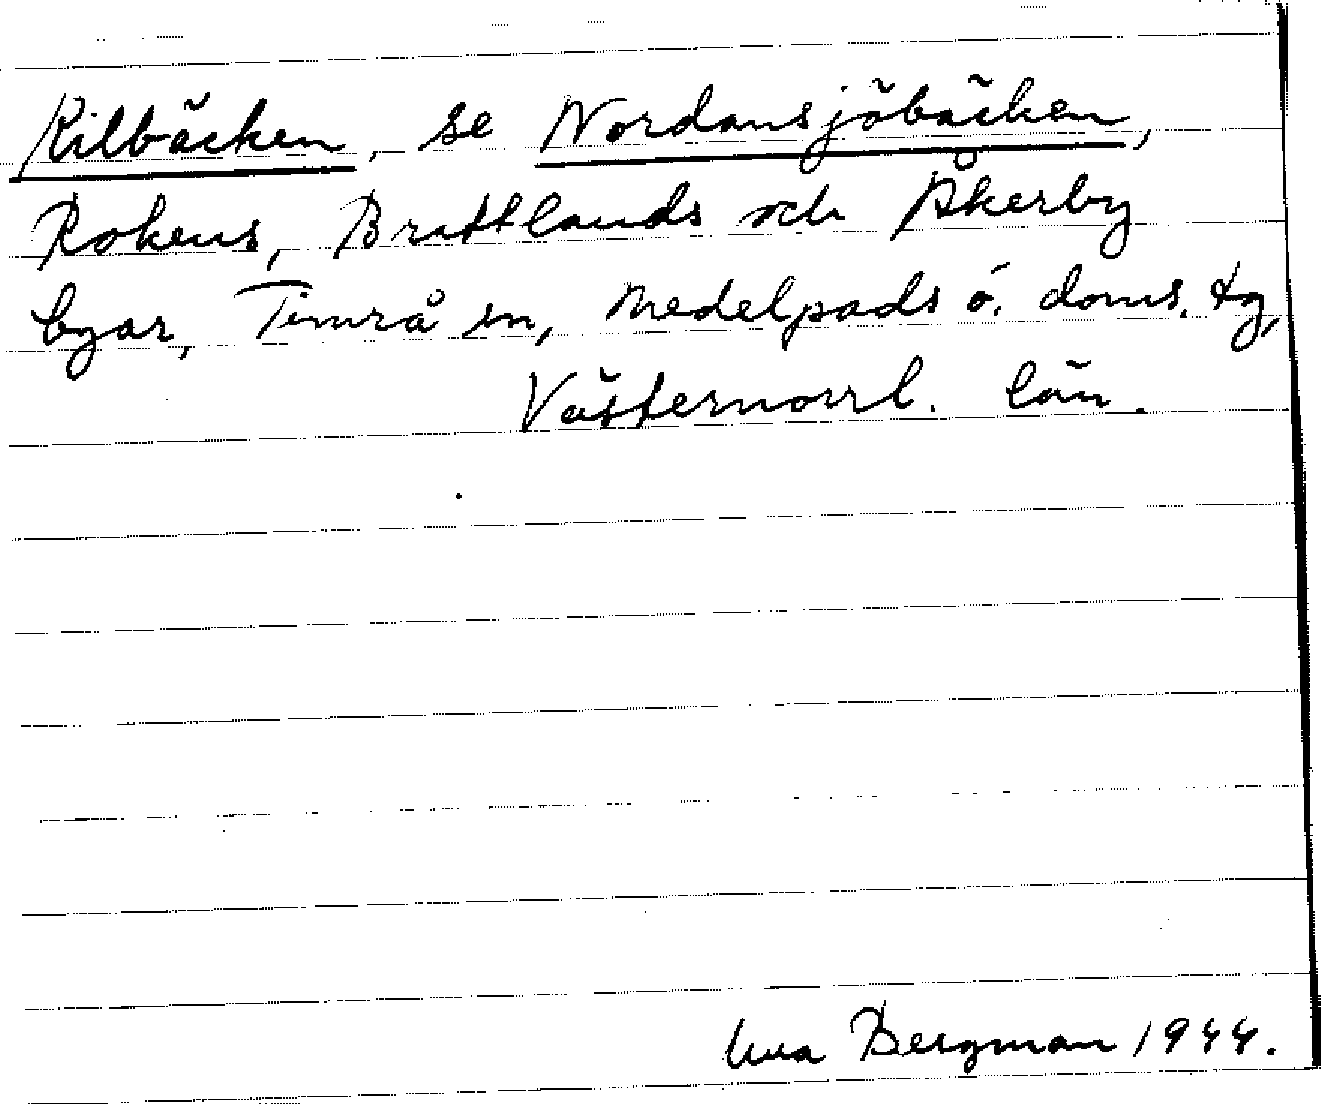 Kilbäcken, se Nordansjöbäcken,
Rokens, Brattlands och Åkerby
byar, Timrå sn, Medelpads ö. doms. tg,
Västernorrl. län.
Bergman 1944.